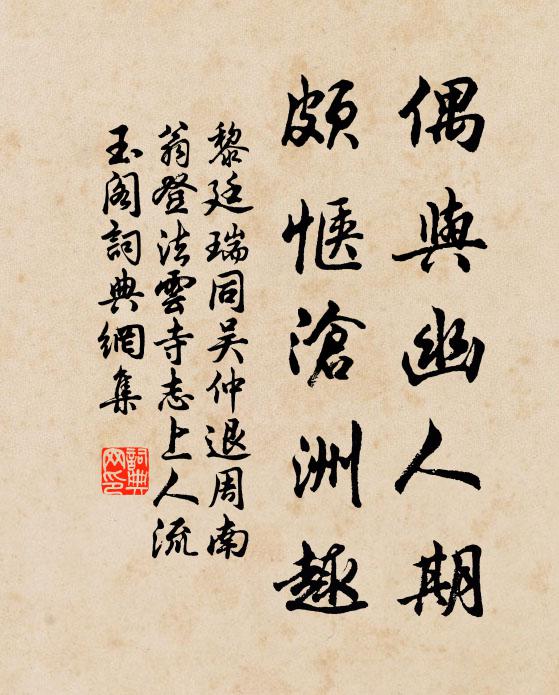 偶與幽人期
頗愜滄洲趣
黎廷瑞同吴仲退周南
翁登法雲寺志上人流
玉閣詞典網集
詞典网印